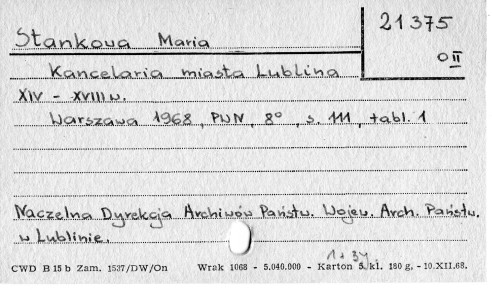 21375
Stankowa Maria
O II
Kancelaria miasta Lublina
XIV - XVIII w.
Warszawa 1968, PWN, 8°, s. 111, tabl. 1
Naczelna Dyrekcja Archiwów Państw. Wojew. Arch. Państw.
w Lublinie.
1+34
CWD B 15 b Zam. 1537/DW/On Wrak 1068 - 5.040.000 - Karton 5. kl. 180 g, - 10.XII.68.